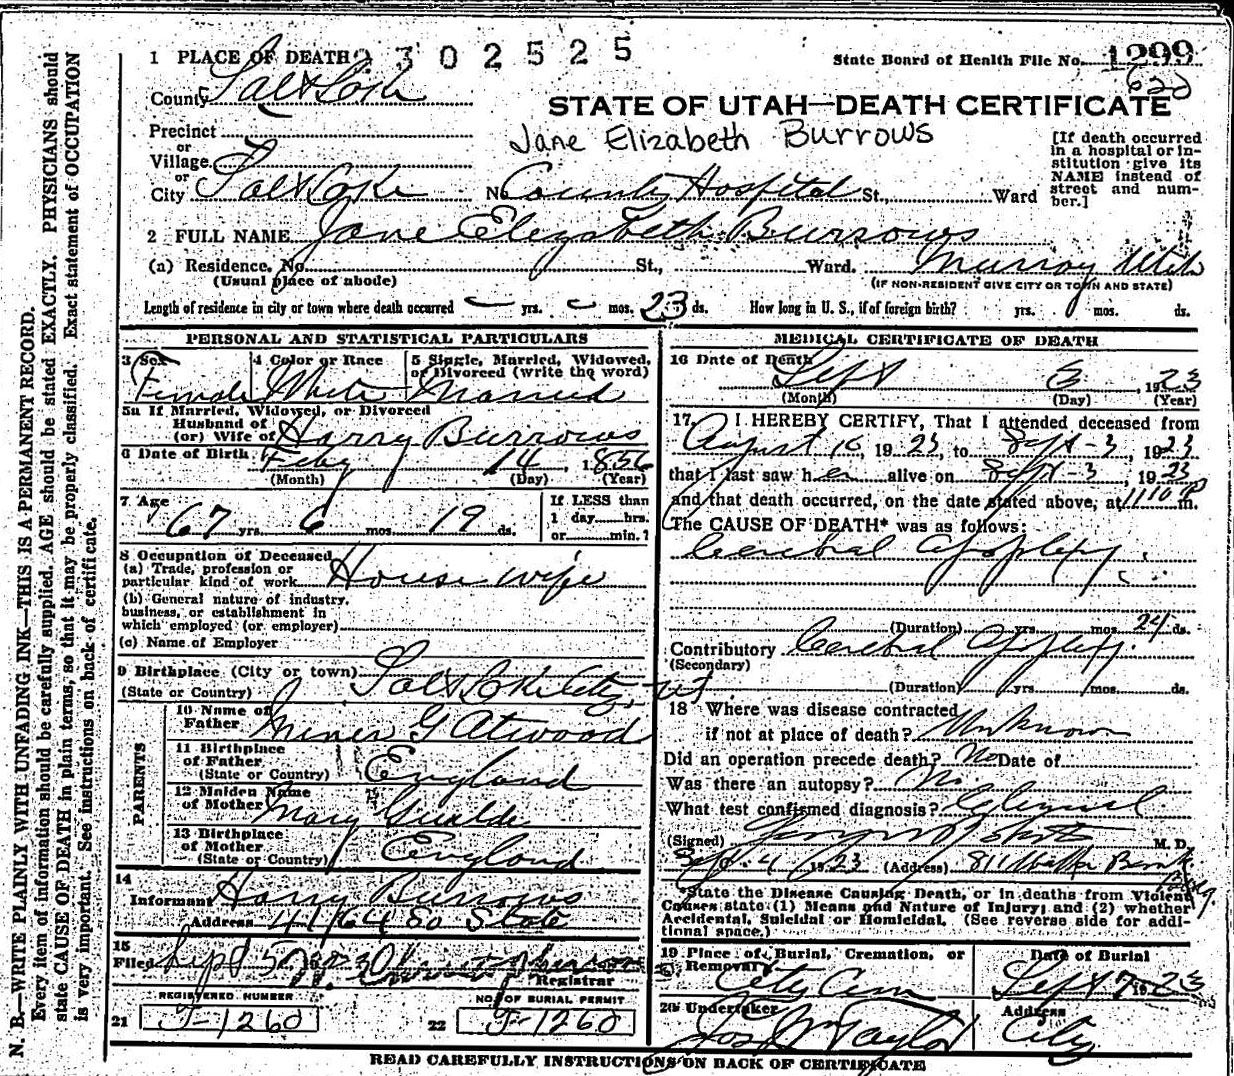 N. B.—WRITE PLAINLY WITH UNFADING INK—THIS IS A PERMANENT RECORD.
Every item of information should be carefully supplied. AGE should be stated EXACTLY. PHYSICIANS should
state CAUSE OF DEATH in plain terms, so that it may be properly classified. Exact statement of OCCUPATION
is very important. See instructions on back of certificate.
1 PLACE OF DEATH 2302525
State Board of Health File No. 1299
620
County Salt Lake
STATE OF UTAH—DEATH CERTIFICATE
Jane Elizabeth Burrows
Precinct
or
Village
or
City Salt Lake No. County Hospital St., Ward
[If death occurred
in a hospital or in-
stitution give its
NAME instead of
street and num-
ber.]
2 FULL NAME Jane Elizabeth Burrows
(a) Residence. No. St., Ward. Murray Utah
(Usual place of abode) (IF NON-RESIDENT GIVE CITY OR TOWN AND STATE)
Length of residence in city or town where death occurred — yrs. — mos. 23 ds. How long in U. S., if of foreign birth? yrs. mos. ds.
PERSONAL AND STATISTICAL PARTICULARS
3 Sex 4 Color or Race 5 Single, Married, Widowed,
or Divorced (write the word)
Female White Married
5a If Married, Widowed, or Divorced
Husband of
(or) Wife of Harry Burrows
6 Date of Birth Feby 14, 1856
(Month) (Day) (Year)
7 Age If LESS than
67 yrs. 6 mos. 19 ds. 1 day hrs.
or min.?
8 Occupation of Deceased
(a) Trade, profession or
particular kind of work House wife
(b) General nature of industry,
business, or establishment in
which employed (or employer)
(c) Name of Employer
9 Birthplace (City or town) Salt Lake City, Ut
(State or Country)
PARENTS
10 Name of
Father Miner G Atwood
11 Birthplace
of Father England
(State or Country)
12 Maiden Name
of Mother Mary
13 Birthplace
of Mother England
(State or Country)
14
Informant Harry Burrows
Address 4164 So State
15
Filed Sept 5
Registrar
REGISTERED NUMBER NO. OF BURIAL PERMIT
21 J-1260 22 J-1260
MEDICAL CERTIFICATE OF DEATH
16 Date of Death Sept 3, 1923
(Month) (Day) (Year)
17. I HEREBY CERTIFY, That I attended deceased from
August 10, 1923, to Sept-3, 1923
that I last saw her alive on Sept-3, 1923
and that death occurred, on the date stated above, at 1110 P m.
The CAUSE OF DEATH* was as follows:
Cerebral Apoplexy
(Duration) yrs. mos. 24 ds.
Contributory Cerebral Apoplexy
(Secondary)
(Duration) yrs. mos. ds.
18 Where was disease contracted
if not at place of death? Unknown
Did an operation precede death? No Date of
Was there an autopsy? No.
What test confirmed diagnosis?
(Signed) M. D.
Sept. 4, 1923 (Address) 811 Walker Bank Bldg.
*State the Disease Causing Death, or in deaths from Violent
Causes state (1) Means and Nature of Injury; and (2) whether
Accidental, Suicidal or Homicidal. (See reverse side for addi-
tional space.)
19 Place of Burial, Cremation, or
Removal
Date of Burial
City Cem Sept 7 1923
20 Undertaker Address
Jos Wm Taylor City
READ CAREFULLY INSTRUCTIONS ON BACK OF CERTIFICATE